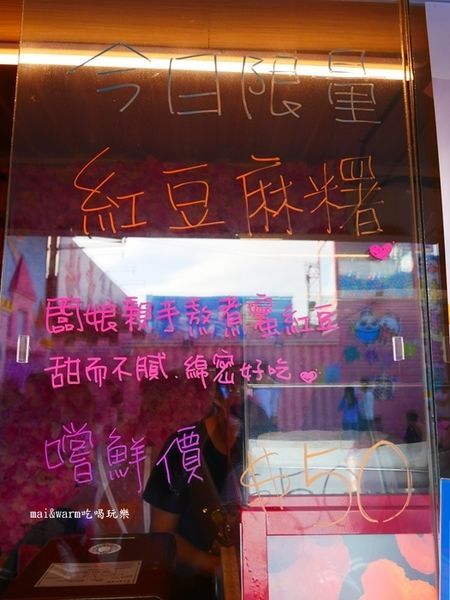 今日限量
紅豆麻糬
闆娘親手熬煮蜜紅豆
甜而不膩.綿密好吃
嚐鮮價 $50
mai&warm吃喝玩樂